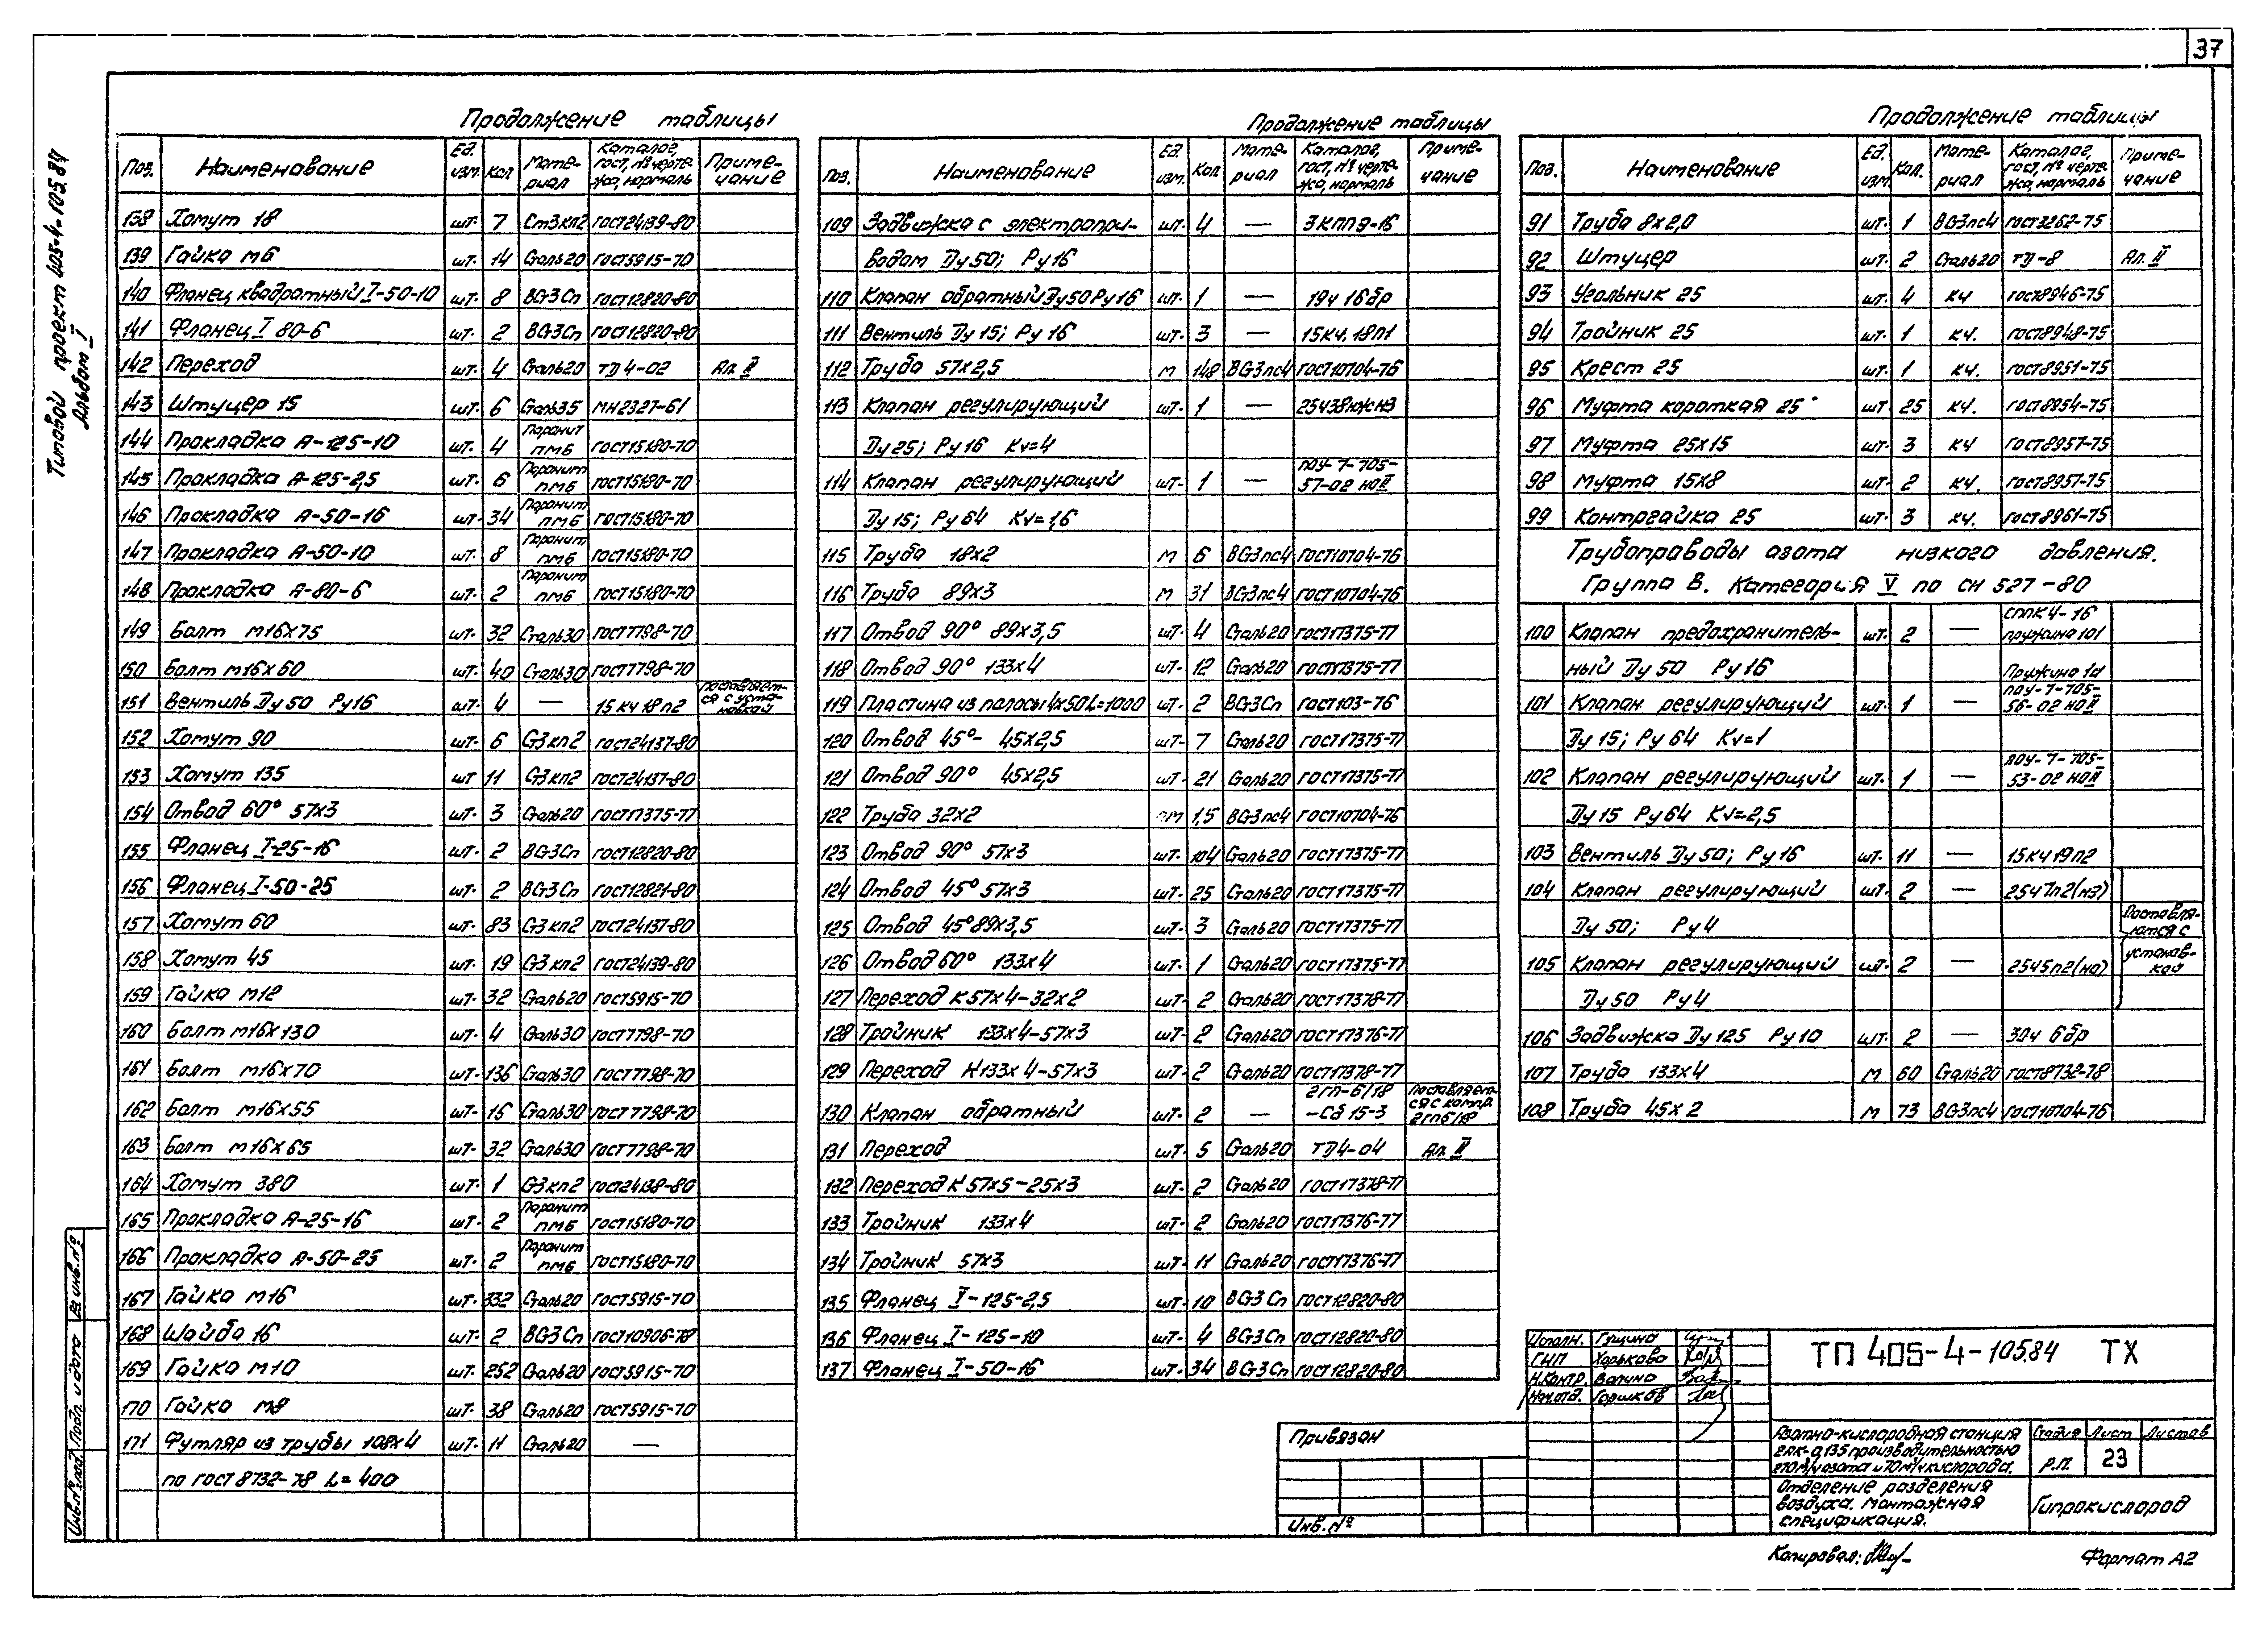 37
Типовой проект 405-4-105.84
Альбом I
Продолжение таблицы
Поз. Наименование Ед. изм. Кол Мате-риал Каталог, гост, № черте-жа, нормаль Приме-чание
138 Хомут 18 шт. 7 Ст3кп2 ГОСТ24139-80
139 Гайка М6 шт. 14 Сталь20 ГОСТ5915-70
140 Фланец квадратный I-50-10 шт. 8 ВСт3Сп ГОСТ12820-80
141 Фланец I 80-6 шт. 2 ВСт3Сп ГОСТ12820-80
142 Переход шт. 4 Сталь20 ТД4-02 Ал. II
143 Штуцер 15 шт. 6 Сталь35 МН2327-61
144 Прокладка А-125-10 шт. 4 Паронит ПМБ ГОСТ15180-70
145 Прокладка А-125-2,5 шт. 6 Паронит ПМБ ГОСТ15180-70
146 Прокладка А-50-16 шт. 34 Паронит ПМБ ГОСТ15180-70
147 Прокладка А-50-10 шт. 8 Паронит ПМБ ГОСТ15180-70
148 Прокладка А-80-6 шт. 2 Паронит ПМБ ГОСТ15180-70
149 Болт М16х75 шт. 32 Сталь30 ГОСТ7798-70
150 Болт М16х60 шт. 40 Сталь30 ГОСТ7798-70
151 Вентиль Ду50 Ру16 шт. 4 — 15кч18п2 Поставляет-ся с уста-новкой
152 Хомут 90 шт. 6 Ст3кп2 ГОСТ24137-80
153 Хомут 135 шт 11 Ст3кп2 ГОСТ24137-80
154 Отвод 60° 57х3 шт. 3 Сталь20 ГОСТ17375-77
155 Фланец I-25-16 шт. 2 ВСт3Сп ГОСТ12820-80
156 Фланец I-50-25 шт. 2 ВСт3Сп ГОСТ12821-80
157 Хомут 60 шт. 83 Ст3кп2 ГОСТ24137-80
158 Хомут 45 шт. 19 Ст3кп2 ГОСТ24139-80
159 Гайка М12 шт. 32 Сталь20 ГОСТ5915-70
160 Болт М16х130 шт. 4 Сталь30 ГОСТ7798-70
161 Болт М16х70 шт. 136 Сталь30 ГОСТ7798-70
162 Болт М16х55 шт. 16 Сталь30 ГОСТ7798-70
163 Болт М16х65 шт. 32 Сталь30 ГОСТ7798-70
164 Хомут 380 шт. 1 Ст3кп2 ГОСТ24138-80
165 Прокладка А-25-16 шт. 2 Паронит ПМБ ГОСТ15180-70
166 Прокладка А-50-25 шт. 2 Паронит ПМБ ГОСТ15180-70
167 Гайка М16 шт. 332 Сталь20 ГОСТ5915-70
168 Шайба 16 шт. 2 ВСт3Сп ГОСТ10906-78
169 Гайка М10 шт. 252 Сталь20 ГОСТ5915-70
170 Гайка М8 шт. 38 Сталь20 ГОСТ5915-70
171 Футляр из трубы 108х4 шт. 11 Сталь20 —
по ГОСТ8732-78 L=400
Продолжение таблицы
Поз. Наименование Ед. изм. Кол Мате-риал Каталог, гост, № черте-жа, нормаль Приме-чание
109 Задвижка с электропри- шт. 4 — ЗКПП9-16
водом Ду50; Ру16
110 Клапан обратный Ду50 Ру16 шт. 1 — 19ч16бр
111 Вентиль Ду15; Ру16 шт. 3 — 15кч.18п1
112 Труба 57х2,5 м 148 ВСт3пс4 ГОСТ10704-76
113 Клапан регулирующий шт. 1 — 25ч38нжНЗ
Ду25; Ру16 Кv=4
114 Клапан регулирующий шт. 1 — ПОУ-7-705-57-02 НОII
Ду15; Ру64 Кv=1,6
115 Труба 18х2 м 6 ВСт3пс4 ГОСТ10704-76
116 Труба 89х3 м 31 ВСт3пс4 ГОСТ10704-76
117 Отвод 90° 89х3,5 шт. 4 Сталь20 ГОСТ17375-77
118 Отвод 90° 133х4 шт. 12 Сталь20 ГОСТ17375-77
119 Пластина из полосы 4х50 L=1000 шт. 2 ВСт3Сп ГОСТ103-76
120 Отвод 45°- 45х2,5 шт. 7 Сталь20 ГОСТ17375-77
121 Отвод 90° 45х2,5 шт. 21 Сталь20 ГОСТ17375-77
122 Труба 32х2 м 1,5 ВСт3пс4 ГОСТ10704-76
123 Отвод 90° 57х3 шт. 104 Сталь20 ГОСТ17375-77
124 Отвод 45° 57х3 шт. 25 Сталь20 ГОСТ17375-77
125 Отвод 45° 89х3,5 шт. 3 Сталь20 ГОСТ17375-77
126 Отвод 60° 133х4 шт. 1 Сталь20 ГОСТ17375-77
127 Переход К57х4-32х2 шт. 2 Сталь20 ГОСТ17378-77
128 Тройник 133х4-57х3 шт. 2 Сталь20 ГОСТ17376-77
129 Переход К133х4-57х3 шт. 2 Сталь20 ГОСТ17378-77
130 Клапан обратный шт. 2 — 2ГП-6/18-Сб 15-3 Поставляет-ся с компр. 2ГП6/18
131 Переход шт. 5 Сталь20 ТД4-04 Ал. II
132 Переход К57х5-25х3 шт. 2 Сталь20 ГОСТ17378-77
133 Тройник 133х4 шт. 2 Сталь20 ГОСТ17376-77
134 Тройник 57х3 шт. 11 Сталь20 ГОСТ17376-77
135 Фланец V-125-2,5 шт. 10 ВСт3Сп ГОСТ12820-80
136 Фланец I-125-10 шт. 4 ВСт3Сп ГОСТ12820-80
137 Фланец I-50-16 шт. 34 ВСт3Сп ГОСТ12820-80
Продолжение таблицы
Поз. Наименование Ед. изм. Кол. Мате-риал Каталог, гост, № черте-жа, нормаль Приме-чание
91 Труба 8х2,0 шт. 1 ВСт3пс4 ГОСТ3262-75
92 Штуцер шт. 2 Сталь20 ТД-8 Ал. II
93 Угольник 25 шт. 4 КЧ ГОСТ8946-75
94 Тройник 25 шт. 1 КЧ. ГОСТ8948-75
95 Крест 25 шт. 1 КЧ. ГОСТ8951-75
96 Муфта короткая 25 шт 25 КЧ. ГОСТ8954-75
97 Муфта 25х15 шт. 3 КЧ ГОСТ8957-75
98 Муфта 15х8 шт. 2 КЧ. ГОСТ8957-75
99 Контргайка 25 шт. 3 КЧ. ГОСТ8961-75
Трубопроводы азота низкого давления.
Группа В. Категория V по СН 527-80
100 Клапан предохранитель- шт. 2 — СППК4-16 пружина 101
ный Ду50 Ру16 Пружина 1д
101 Клапан регулирующий шт. 1 — ПОУ-7-705-56-02 НОII
Ду15; Ру64 Кv=1
102 Клапан регулирующий шт. 1 — ПОУ-7-705-53-02 НОII
Ду15 Ру64 Кv=2,5
103 Вентиль Ду50; Ру16 шт. 11 — 15кч19п2
104 Клапан регулирующий шт. 2 — 2547п2(нз) Поставля-ются с
Ду50; Ру4
105 Клапан регулирующий шт. 2 — 2545п2(но) установ-кой
Ду50 Ру4
106 Задвижка Ду125 Ру10 шт. 2 — 30ч6бр
107 Труба 133х4 м 60 Сталь20 ГОСТ8732-78
108 Труба 45х2 м 73 ВСт3пс4 ГОСТ10704-76
Исполн. Гущина
ГИП Харькова
Н.Контр. Валина
Нач.отд. Горшков
ТП 405-4-105.84 ТХ
Азотно-кислородная станция
2АК-0,135 производительностью
270м³/ч азота и 70м³/ч кислорода.
Стадия Лист Листов
Р.П. 23
Отделение разделения
воздуха. Монтажная
спецификация.
Гипрокислород
Привязан
Инв.№
Взам.инв.№
Подп. и дата
Инв.№ подл.
Копировал:
Формат А2